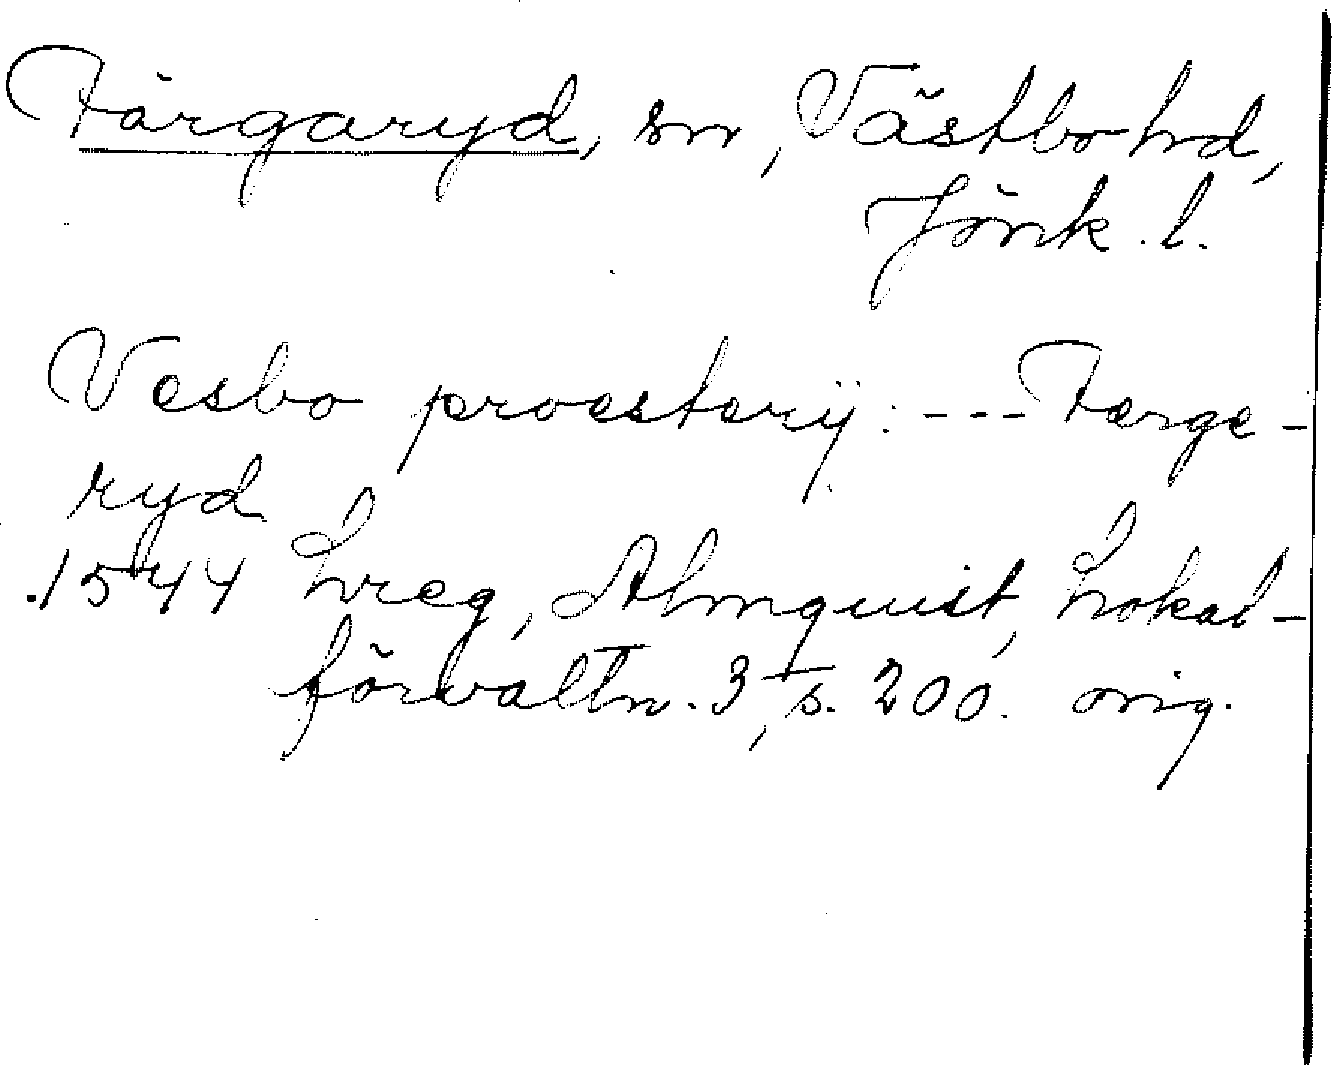 Färgaryd, sn, Västbo hd,
Jönk. l.
Vesbo proesterij: --- Ferge-
ryd
1544 Lreg, Almquist, Lokal-
förvaltn. 3, s. 200. orig.